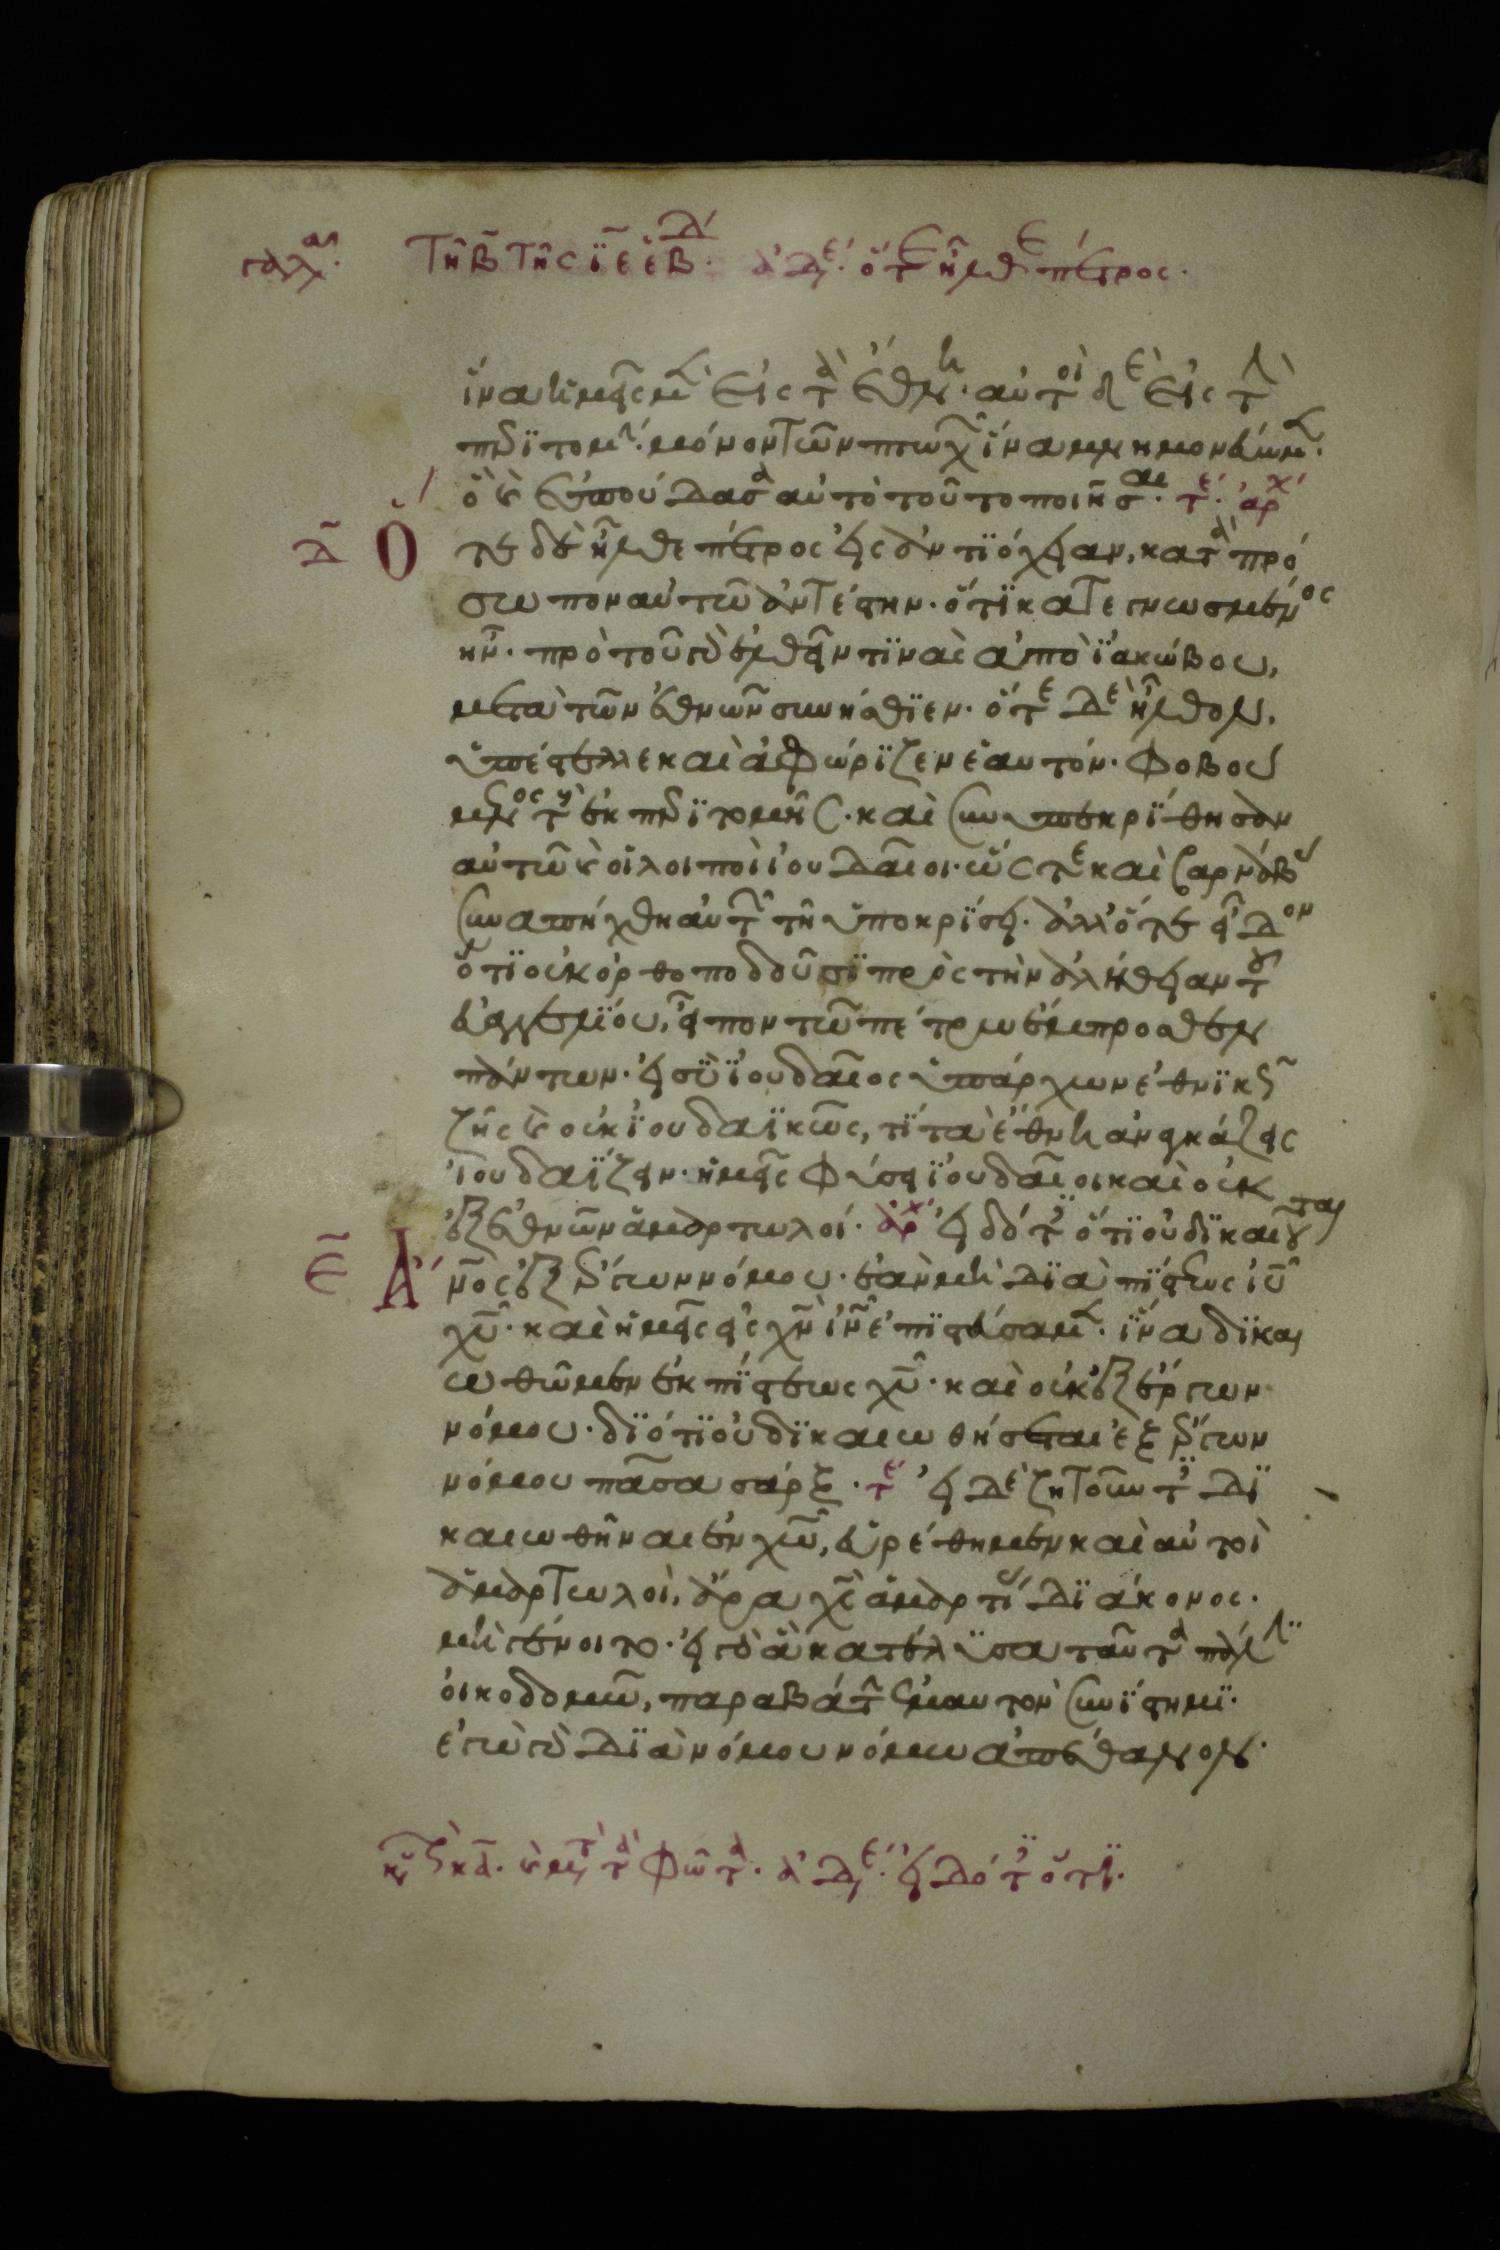 γαλα. Τῆ β̄ τῆς ῑε ἑβδ. ἀδε. ὅτε ἦλθε πέτρος.
ἵνα ἡμεῖς μ(ὲν) εἰς τὰ ἔθνη· αὐτοὶ δὲ εἰς τὴν
περϊτομήν· μόνον τῶν πτωχῶν ἵνα μνημονεύωμεν·
ὃ καὶ ἐσπούδασα αὐτὸ τοῦτο ποιῆσαι. τέ. ἀρχ
δ̄ Ὅτε δὲ ἦλθε πέτρος εἰς ἀντϊόχειαν, κατὰ πρό
σωπον αὐτῶ ἀντέστην· ὅτϊ κατεγνωσμένος
ἦν· πρὸ τοῦ γὰρ ἐλθεῖν τϊνὰς ἀπὸ ϊακώβου,
μετὰ τῶν ἐθνῶν συνήσθϊεν· ὅτε δὲ ἦλθον,
ὑπέστελλε καὶ ἀφώρϊζεν ἑαυτόν· φοβού
μενος τοὺς ἐκ περϊτομῆς· καὶ συνυπεκρΐθησαν
αὐτῶ καὶ οἱ λοιποὶ ϊουδαῖοι· ὥστε καὶ βαρνάβας
συναπήχθη αὐτῶν τῆ ὑποκρΐσει· ἀλλ' ὅτε εἶδον
ὅτϊ οὐκ ὀρθοποδοῦσϊ πρὸς τὴν ἀλήθειαν τοῦ
εὐαγγελΐου, εἶπον τῶ πέτρω ἔμπροσθεν
πάντων· εἰ σὺ ϊουδαῖος ὑπάρχων ἐθνϊκῶς
ζῆς καὶ οὐκ ϊουδαϊκῶς, τΐ τὰ ἔθνη ἀναγκάζεις
ϊουδαΐζειν· ἡμεῖς φύσει ϊουδαῖοι καὶ οὐκ
ἐξ ἐθνῶν ἁμαρτωλοί· ἀρχ εἰδότες ὅτϊ οὐ δϊκαιοῦται
ε̄ Ἄνος ἐξ ἔργων νόμου· ἐὰν μὴ δϊὰ πΐστεως ιυ
χυ· καὶ ἡμεῖς εἰς χν ιν ἐπϊστεύσαμεν· ἵνα δϊκαι
ωθῶμεν ἐκ πΐστεως χυ· καὶ οὐκ ἐξ ἔργων
νόμου· δϊότϊ οὐ δϊκαιωθήσεται ἐξ ἔργων
νόμου πᾶσα σάρξ· τέ εἰ δὲ ζητοῦντες δϊ
καιωθῆναι ἐν χω, εὑρέθημεν καὶ αὐτοὶ
ἁμαρτωλοὶ, ἄρα χς ἁμαρτΐας δϊάκονος·
μὴ γένοιτο· εἰ γὰρ ἃ κατέλυσα ταῦτα πάλϊν
οἰκοδομῶ, παραβάτην ἐμαυτὸν συνΐστημϊ·
ἐγὼ γὰρ δϊὰ νόμου νόμω ἀπέθανον·
κυ κᾱ. μετὰ τὰ φῶτα. ἀδε. εἰδότες ὅτϊ.